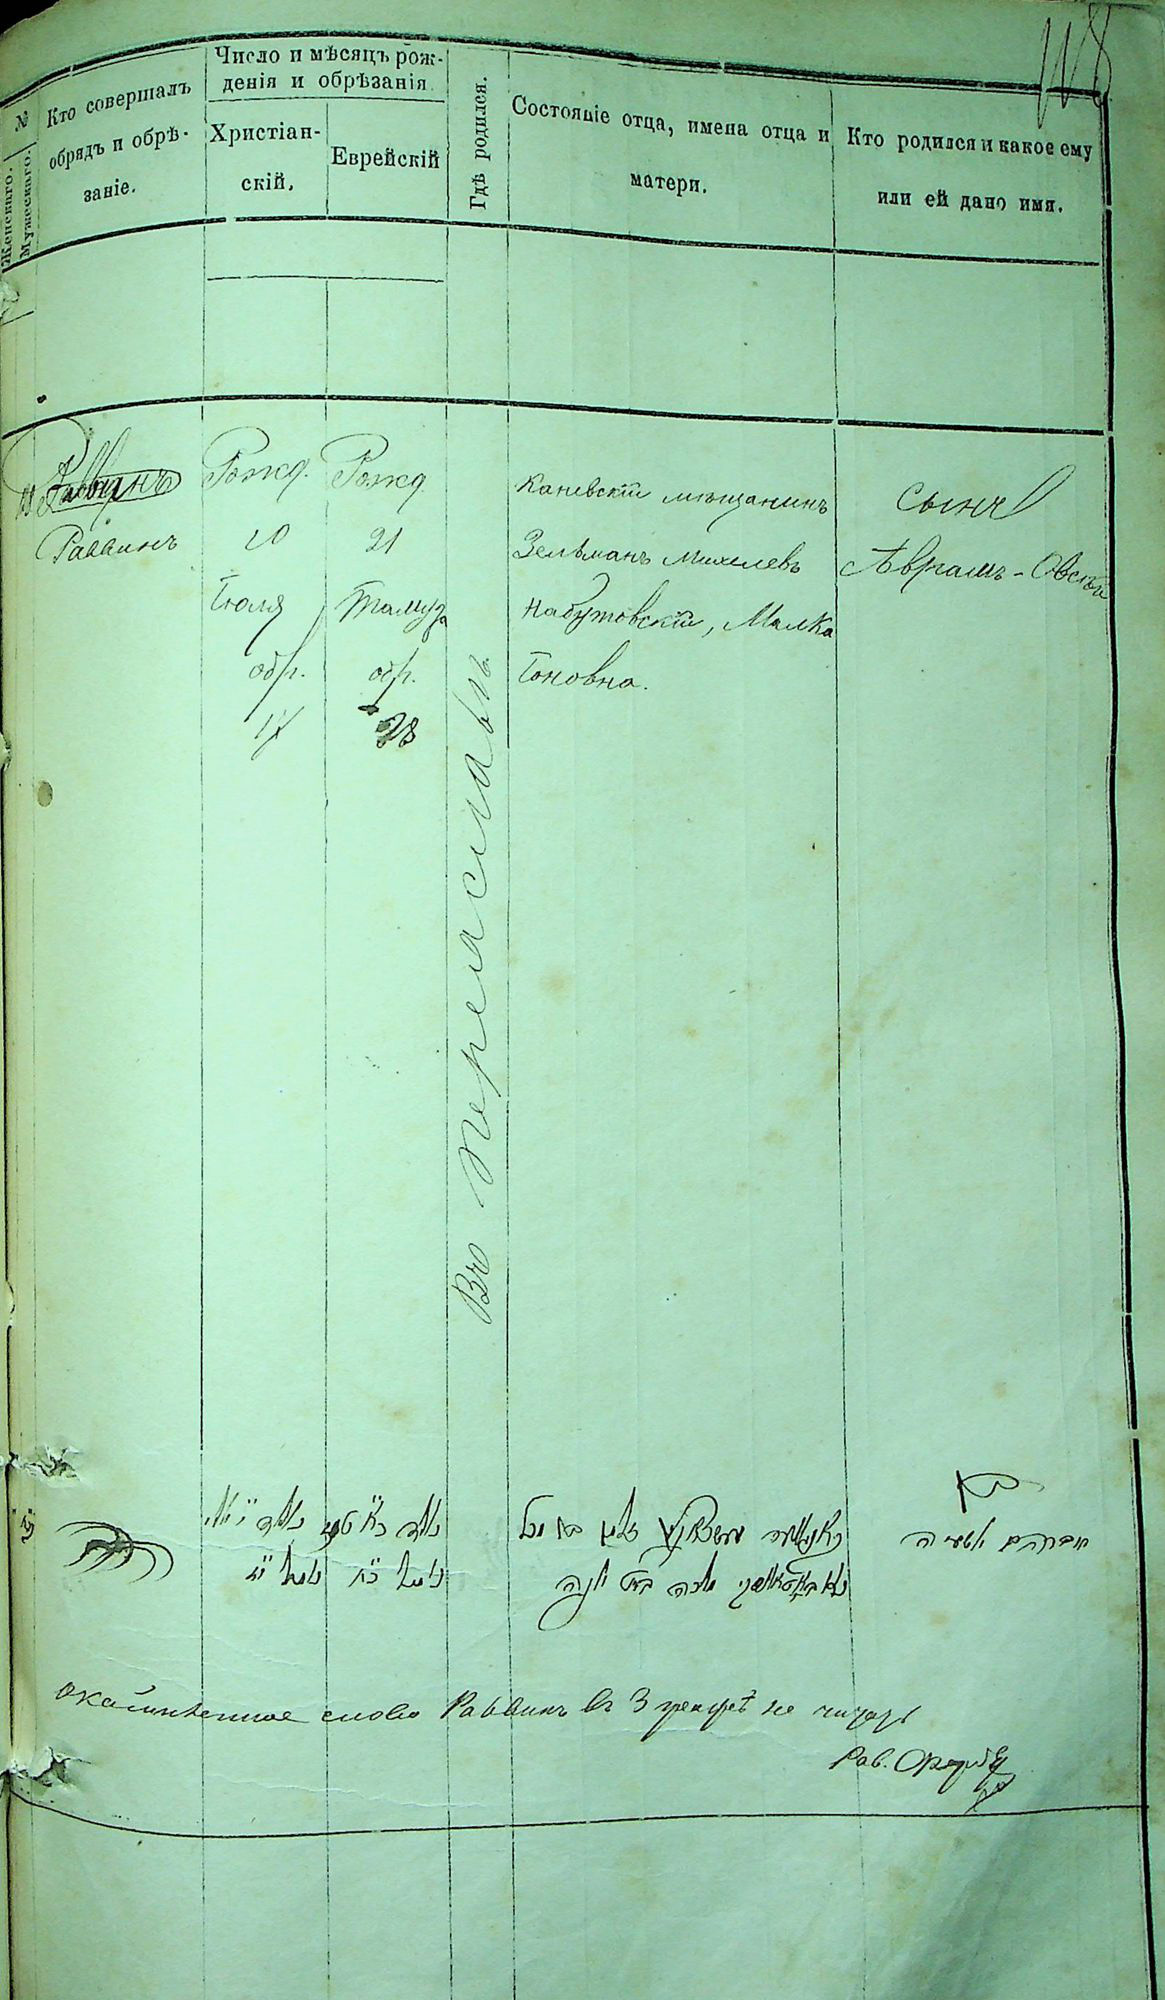 118
№
Женскаго.
Мужескаго.
Кто совершалъ
обрядъ и обрѣ-
заніе.
Число и мѣсяцъ рож-
денія и обрѣзанія.
Христіан-
скій.
Еврейскій
Гдѣ родился.
Состояніе отца, имена отца и
матери.
Кто родился и какое ему
или ей дано имя.
Раввинъ
Раввинъ
Рожд.
10
Іюля
обр.
17
Рожд.
21
Тамуза
обр.
28
Въ Переяславѣ
Каневскій мѣщанинъ
Зельманъ Михелевъ
Набутовскій, Малка
Іоновна.
Сынъ
Аврамъ-Овсѣй
נולד כ״א
נימול כ״ח
נימול י״ז
מלכה בת יונה
בן
אברהם יהושע
окаймленное слово Раввинъ въ 3 графѣ не читать
Рав.